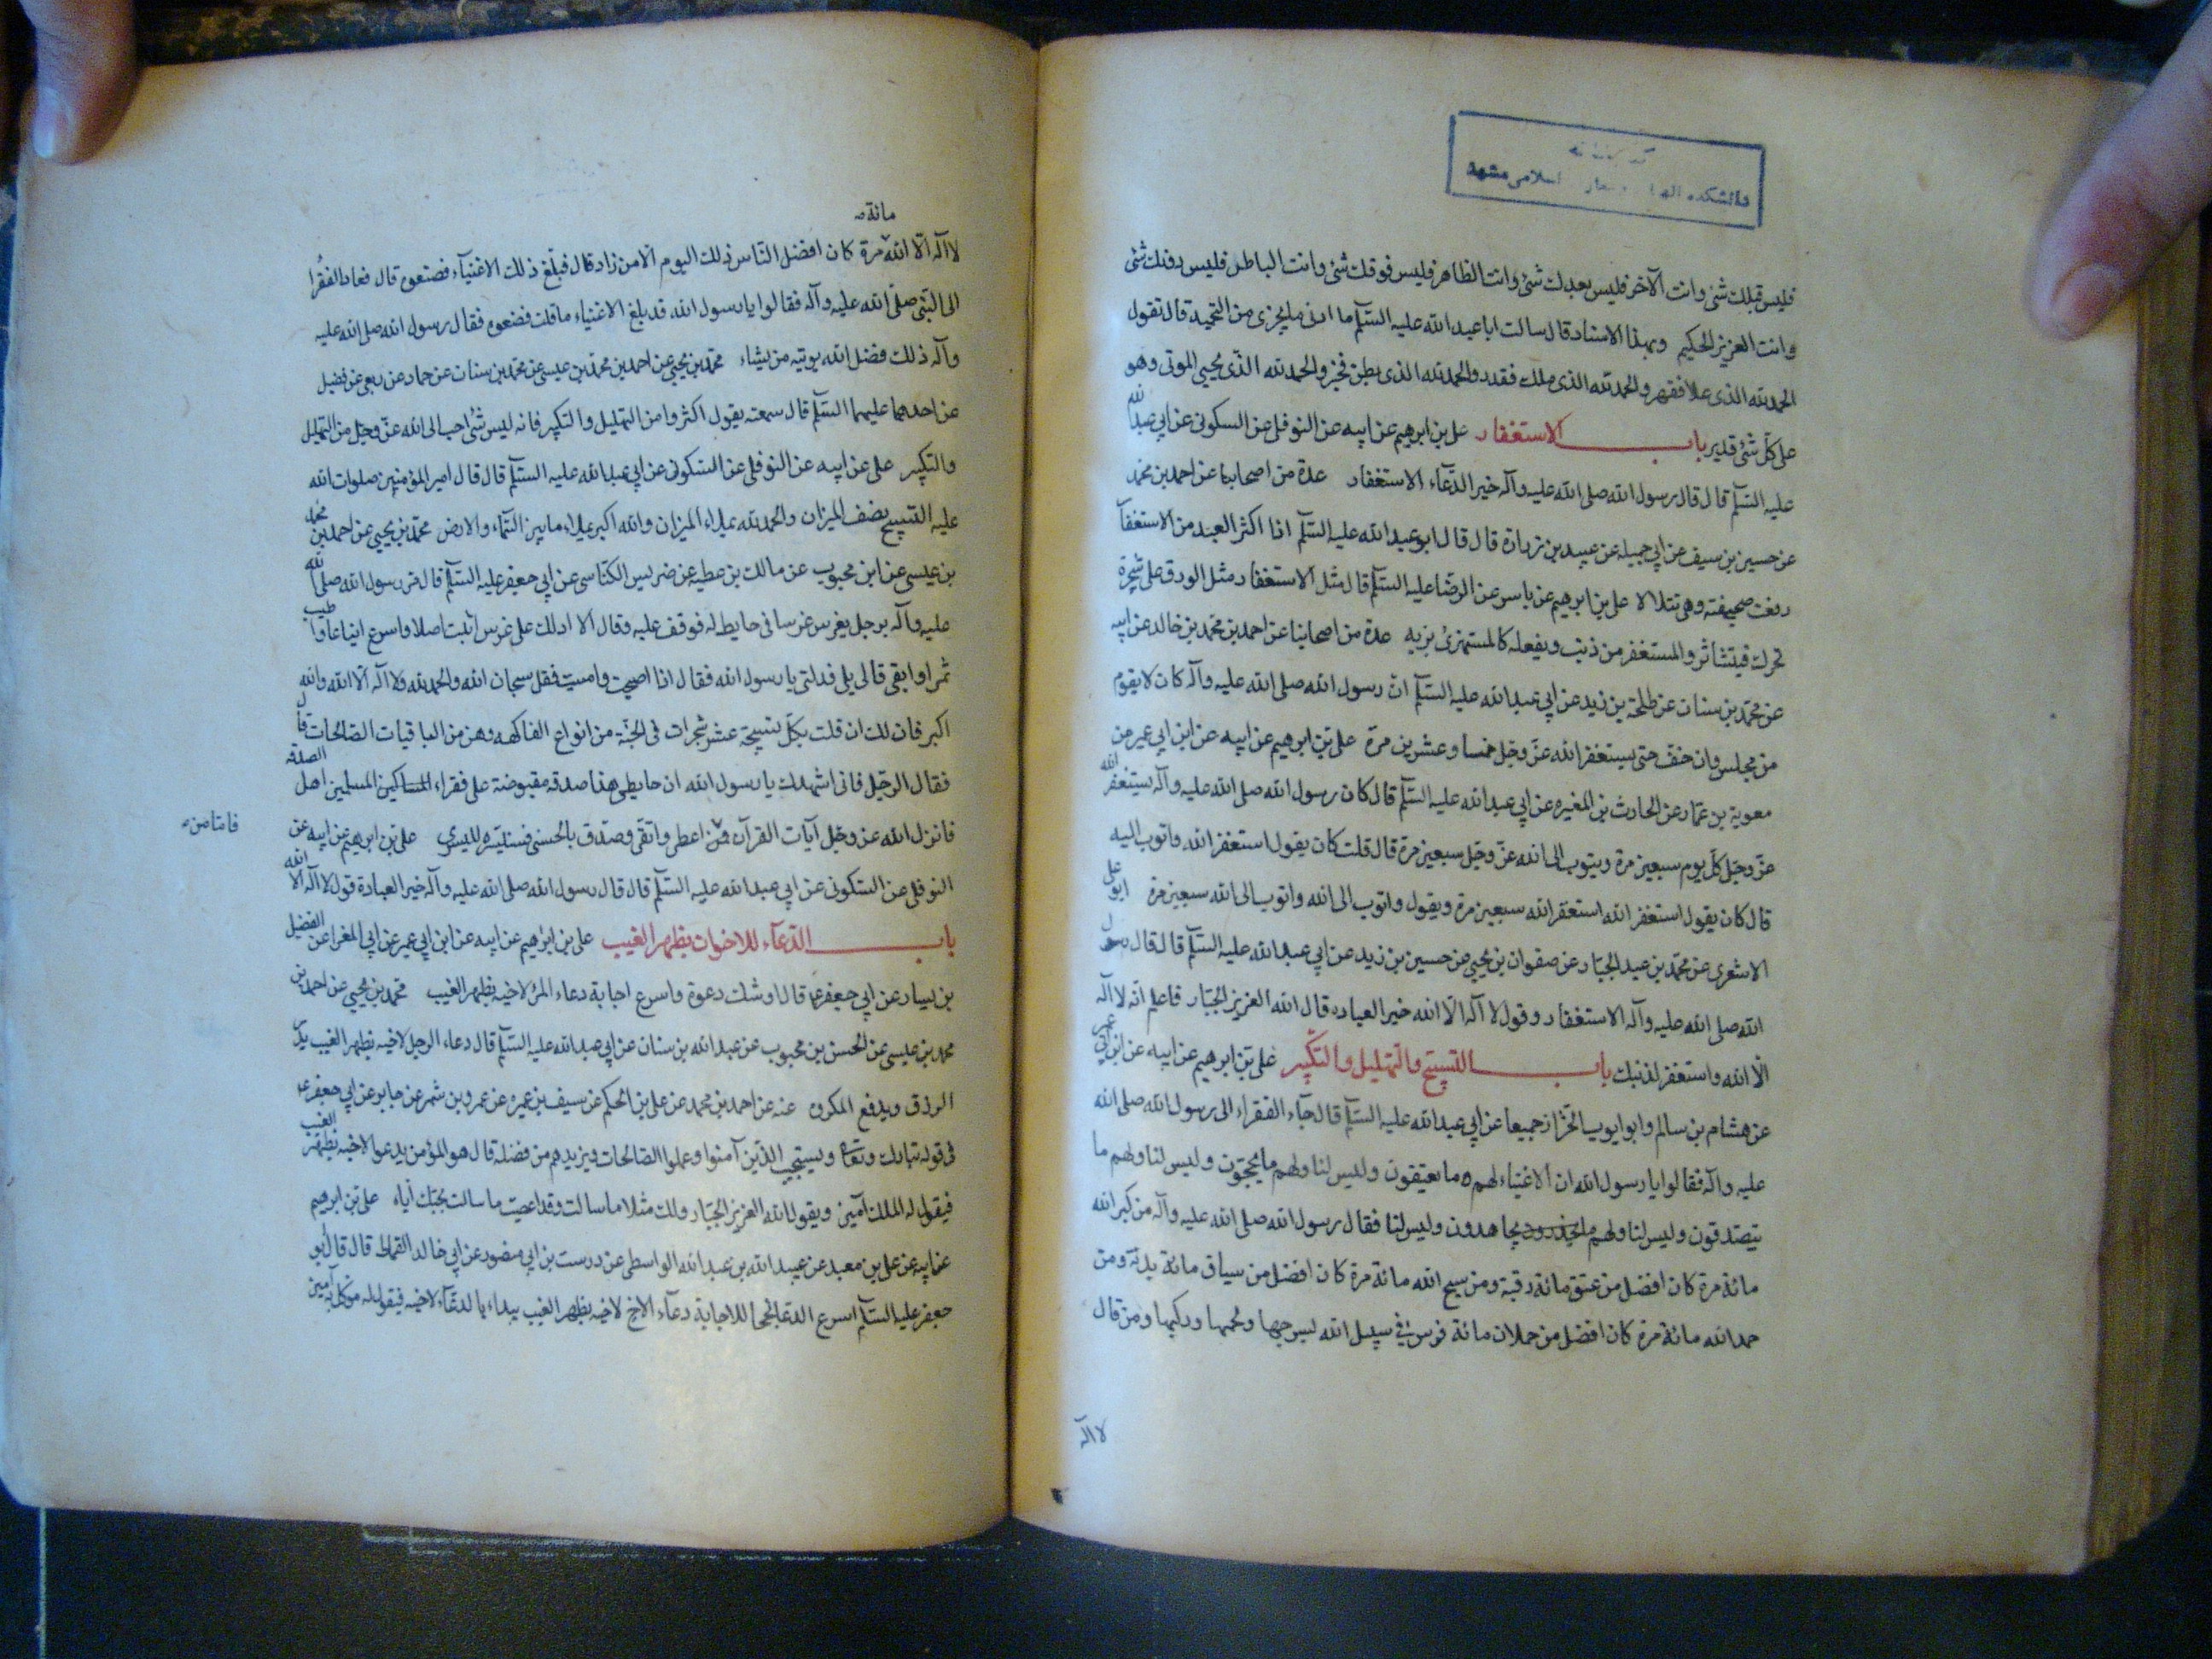 دانشکده اسلامی مشهد
فلیس قبلك شئ وانت الآخر فلیس بعدك شئ وانت الظاهر فلیس فوقك شئ وانت الباطن فلیس دونك شئ
وانت العزیز الحکیم وبهذا الاسناد قال سالت اباعبدالله علیه السلم ما ادنی ما یجزی من التحمید قال تقول
الحمدلله الذی علا فقهر والحمدلله الذی ملك فقدر والحمدلله الذی بطن فخبر والحمدلله الذی یحیی الموتی وهو
علی کلّ شئ قدیر باب الاستغفار علی بن ابرهیم عن ابیه عن النوفلی عن السکونی عن ابی عبدالله
علیه السلم قال قال رسول الله صلی الله علیه وآله خیر الدّعآء الاستغفار عدة من اصحابنا عن احمد بن محمد
عن حسین بن سیف عن ابی جمیله عن عبید بن زرارة قال قال ابوعبدالله علیه السلم اذا اکثر العبد من الاستغفار
رفعت صحیفته وهی تتلالا علی بن ابرهیم عن یاسر عن الرضا علیه السلم قال مثل الاستغفار مثل الورق علی شجرة
تحرك فیتناثر والمستغفر من ذنب ویفعله کالمستهزئ بربه عدة من اصحابنا عن احمد بن محمد بن خالد عن ابیه
عن محمد بن سنان عن طلحة بن زید عن ابی عبدالله علیه السلم انّ رسول الله صلی الله علیه وآله کان لا یقوم
من مجلس وان خفّ حتی یستغفر الله عزّ وجلّ خمسا وعشرین مرة علی بن ابرهیم عن ابیه عن ابن ابی عمیر عن
معویة بن عمّار عن الحارث بن المغیره عن ابی عبدالله علیه السلم قال کان رسول الله صلی الله علیه وآله یستغفر الله
عزّ وجلّ کلّ یوم سبعین مرة ویتوب الی الله عزّ وجلّ سبعین مرة قال قلت کان یقول استغفر الله واتوب الیه
قال کان یقول استغفر الله استغفر الله سبعین مرة ویقول واتوب الی الله واتوب الی الله سبعین مرة ابو علی
الاشعری عن محمد بن عبد الجبّار عن صفوان بن یحیی عن حسین بن زید عن ابی عبدالله علیه السلم قال قال رسول
الله صلی الله علیه وآله الاستغفار وقول لا آله الّا الله خیر العباده قال الله العزیز الجبّار فاعلم انّه لا آله
الّا الله واستغفر لذنبك باب التسبیح والتهلیل والتکبیر علی بن ابرهیم عن ابیه عن ابن ابی عمیر
عن هشام بن سالم وابو ایوب الخزّاز جمیعا عن ابی عبدالله علیه السلم قال جآء الفقراء الی رسول الله صلی الله
علیه وآله فقالوا یا رسول الله ان الاغنیاء لهم ما یعتقون ولیس لنا ولهم ما یحجّون ولیس لنا ولهم ما
یتصدقون ولیس لنا ولهم ما یجاهدون ولیس لنا فقال رسول الله صلی الله علیه وآله من کبر الله
مائة مرة کان افضل من عتق مائة رقبة ومن سبح الله مائة مرة کان افضل من سیاق مائة بدنة ومن
حمد الله مائة مرة کان افضل من حملان مائة فرس فی سبیل الله بسرجها ولجمها ورکبها ومن قال
لا اله
مائة
لا آله الّا الله مرة کان افضل النّاس ذلك الیوم الّا من زاد قال فبلّغ ذلك الاغنیآء فصنعوه قال فعاد الفقرا
الی النّبی صلّی الله علیه وآله فقالوا یا رسول الله قد بلغ الاغنیاء ما قلت فصنعوه فقال رسول الله صلی الله علیه
وآله ذلك فضل الله یوتیه من یشاء محمد بن یحیی عن احمد بن محمد بن عیسی عن محمد بن سنان عن حماد عن ربعی عن فضیل
عن احدهما علیهما السلم قال سمعته یقول اکثروا من التهلیل والتکبیر فانه لیس شئ احب الی الله عزّ وجلّ من التهلیل
والتکبیر علی عن ابیه عن النوفلی عن السکونی عن ابی عبدالله علیه السلم قال قال امیر المؤمنین صلوات الله
علیه التسبیح نصف المیزان والحمدلله یملاء المیزان والله اکبر یملاء ما بین السّماء والارض محمد بن یحیی عن احمد بن محمد
بن عیسی عن ابن محبوب عن مالك بن عطیه عن ضریس الکناسی عن ابی جعفر علیه السلم قال مرّ رسول الله صلی الله
علیه وآله برجل یغرس غرسا فی حایط له فوقف علیه وقال الا ادلك علی غرس اثبت اصلا واسرع ایناعا واطیب
ثمرا وابقی قال بلی فدلنی یا رسول الله فقال اذا اصبحت وامسیت فقل سبحان الله والحمدلله ولا آله الّا الله والله
اکبر فان لك ان قلت بکلّ تسبیحة عشر شجرات فی الجنّة من انواع الفاکهه وهن من الباقیات الصّالحات قال
فقال الرّجل فانی اشهدك یا رسول الله ان حایطی هذا صدقه مقبوضة علی فقراء المساکین المسلمین اهل الصدقه
فانزل الله عز وجلّ آیات القرآن من اعطی واتقی وصدّق بالحسنی فسنیسّره للیسری علی بن ابرهیم عن ابیه عن
فامّا من
النوفلی عن السّکونی عن ابی عبدالله علیه السّلم قال قال رسول الله صلی الله علیه وآله خیر العبادة قول لا آله الّا الله
باب الدّعآء للاخوان بظهر الغیب علی بن ابرهیم عن ابیه عن ابن ابی عمیر عن ابی المغرا عن الفضیل
بن یسار عن ابی جعفر ع قال اوشك دعوة واسرع اجابة دعاء المرء لاخیه بظهر الغیب محمد بن یحیی عن احمد بن
محمد بن عیسی عن الحسن بن محبوب عن عبدالله بن سنان عن ابی عبدالله علیه السلم قال دعاء الرجل لاخیه بظهر الغیب یدرّ
الرزق ویدفع المکروه عنه عن احمد بن محمد عن علی بن الحکم عن سیف بن عمیره عن عمرو بن شمر عن جابر عن ابی جعفر ع
فی قوله تبارك وتعالی ویستجیب الذّین آمنوا وعملوا الصّالحات ویزیدهم من فضله قال هو المؤمن یدعوا لاخیه بظهر الغیب
فیقول له الملك آمین ویقول الله العزیز الجبّار ولك مثلا ما سالت وقد اعطیت ما سالت بحبّك ایاه علی بن ابرهیم
عن ابیه عن علی بن معبد عن عبید الله بن عبدالله الواسطی عن درست بن ابی منصور عن ابی خالد القماط قال قال ابو
جعفر علیه السّلم اسرع الدّعا نجحا للاجابة دعآء الاخ لاخیه بظهر الغیب یبداء بالدعآء لاخیه فیقول له موکل به آمین